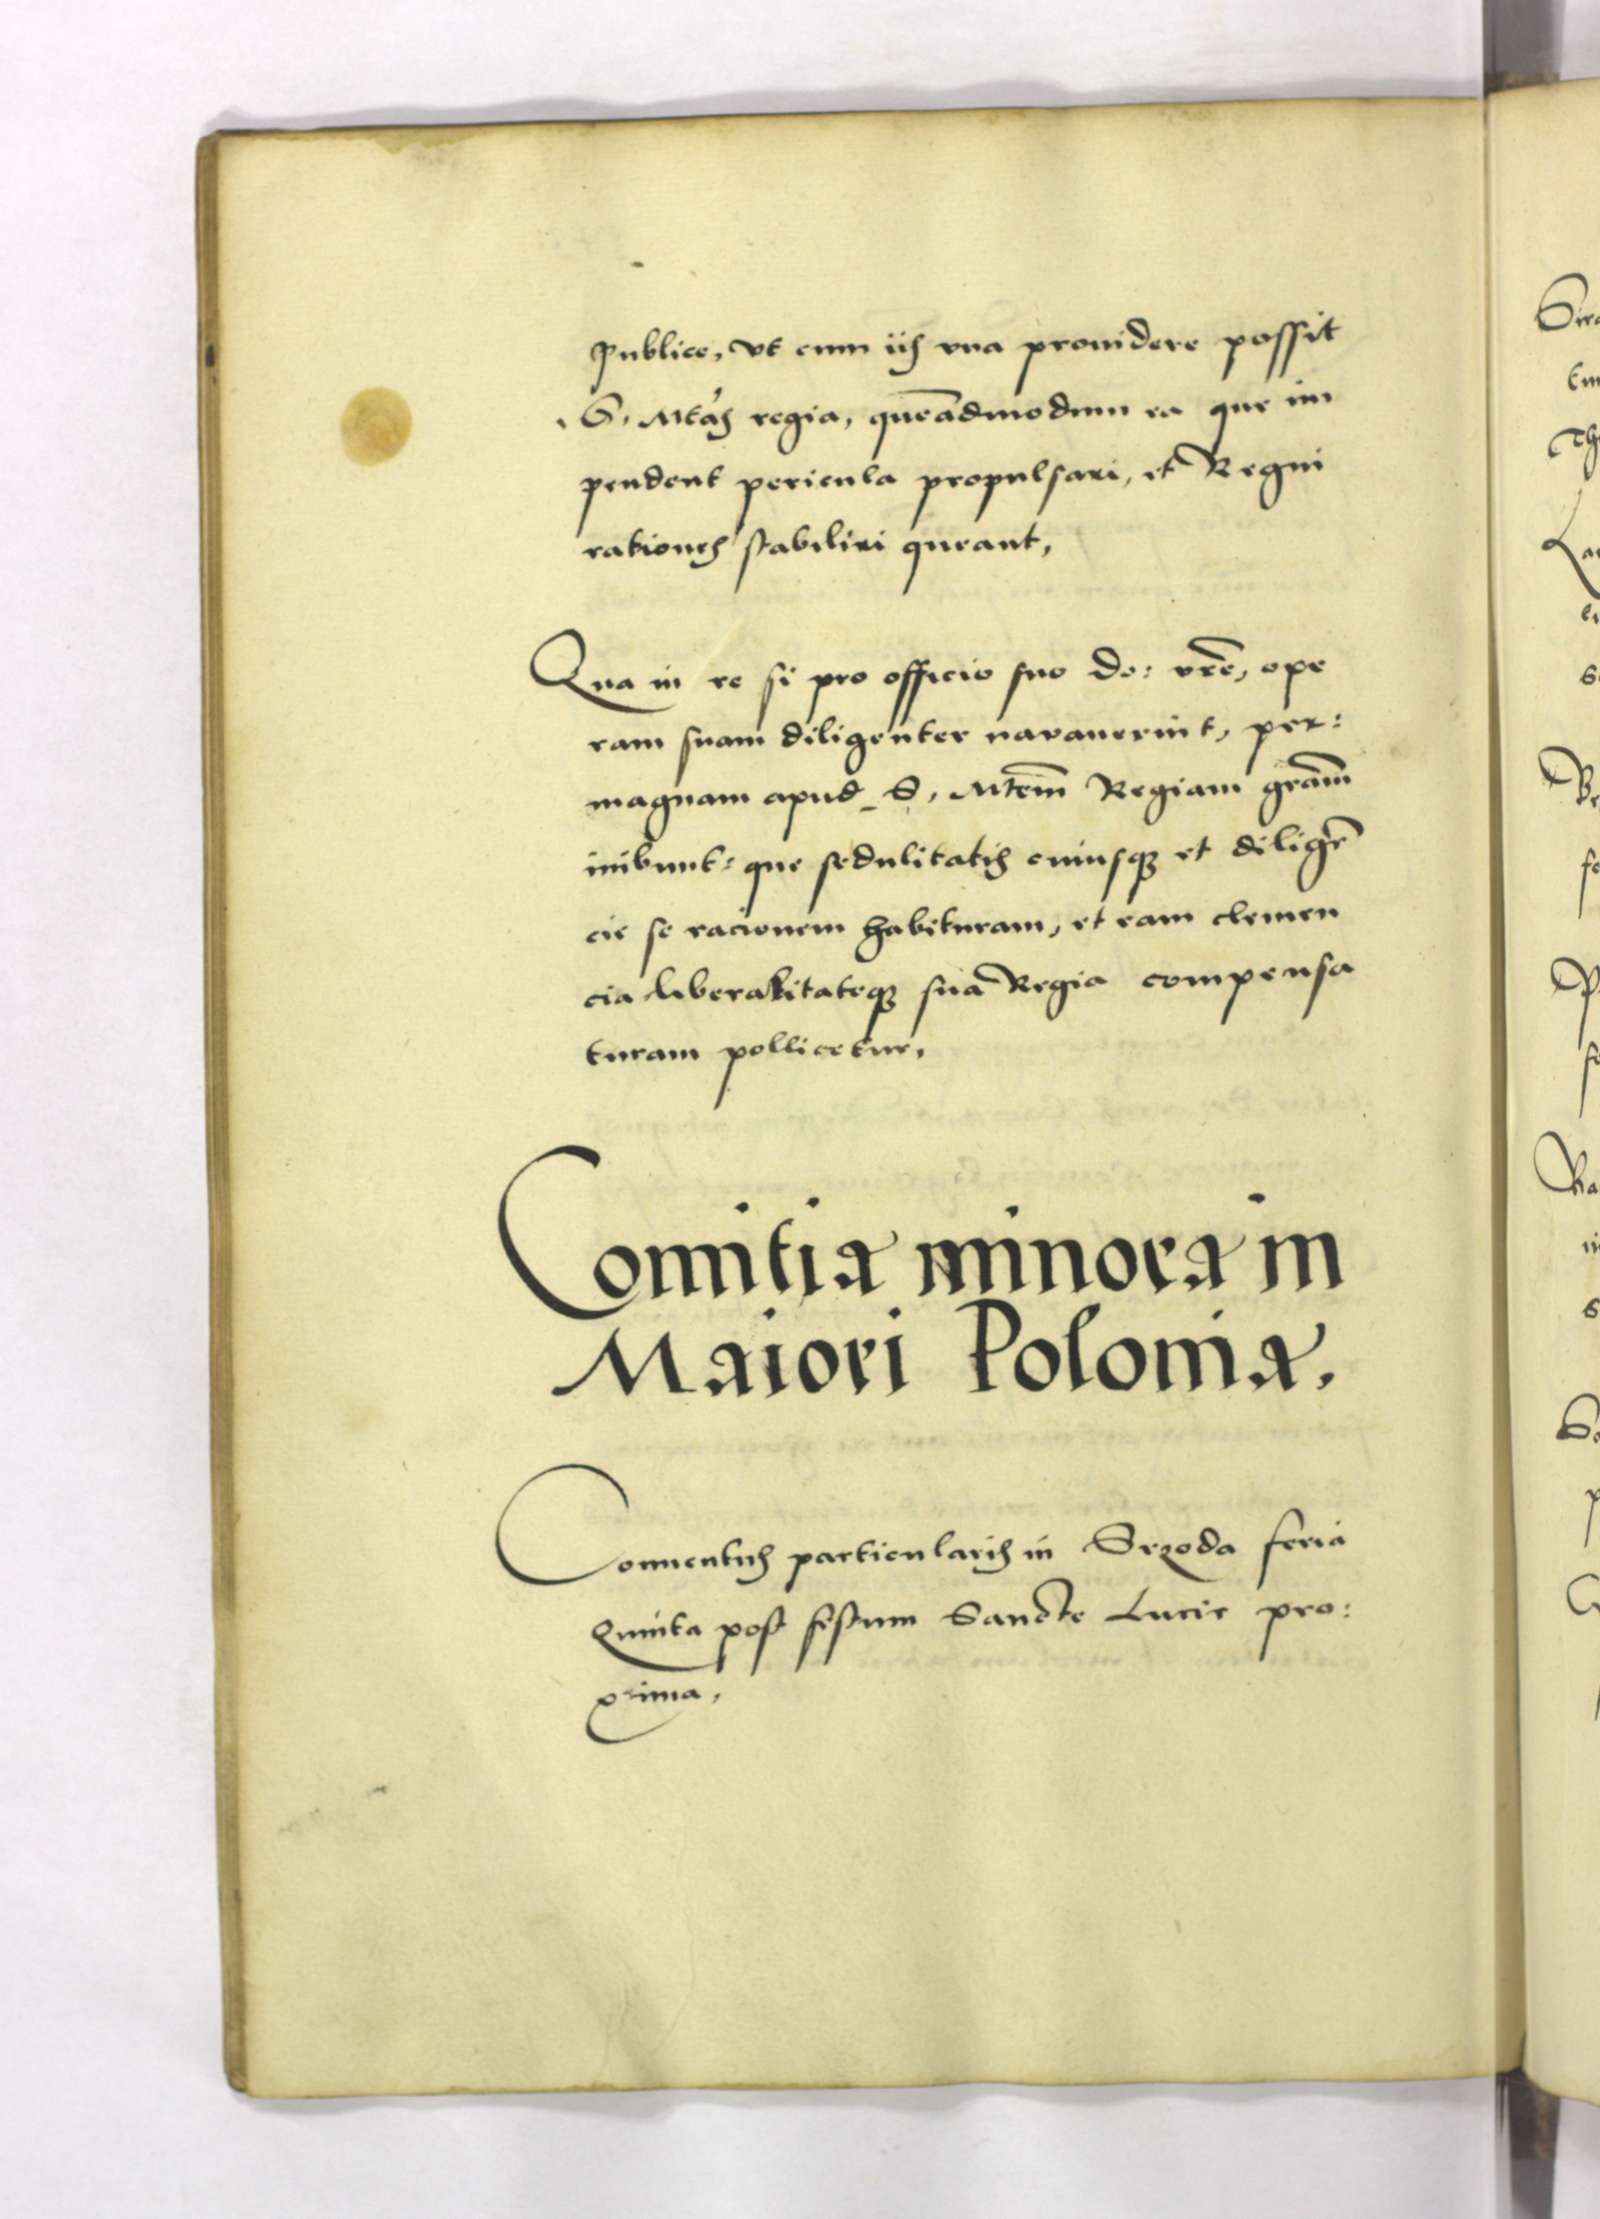 Publice, vt cum iis vna prouidere possit
S. Mtas regia, queādmodum ea que im
pendent pericula propulsari, et Regni
rationes stabiliri queant,
Qua in re si pro officio suo do: vrē, ope
ram suam diligenter nauauerint, per:
magnam apud S. Mtem̄ Regiam gram̄
inibunt: que sedulitatis cuiusq₃ et diligē
cie se racionem habituram, et eam clemen
cia liberalitateq₃ sua Regia compensa
turam pollicetur,
Comitia minora in
Maiori Polonia,
Conuentus particularis in Srzoda feria
Quinta post festum Sancte Lucie pro:
xima,